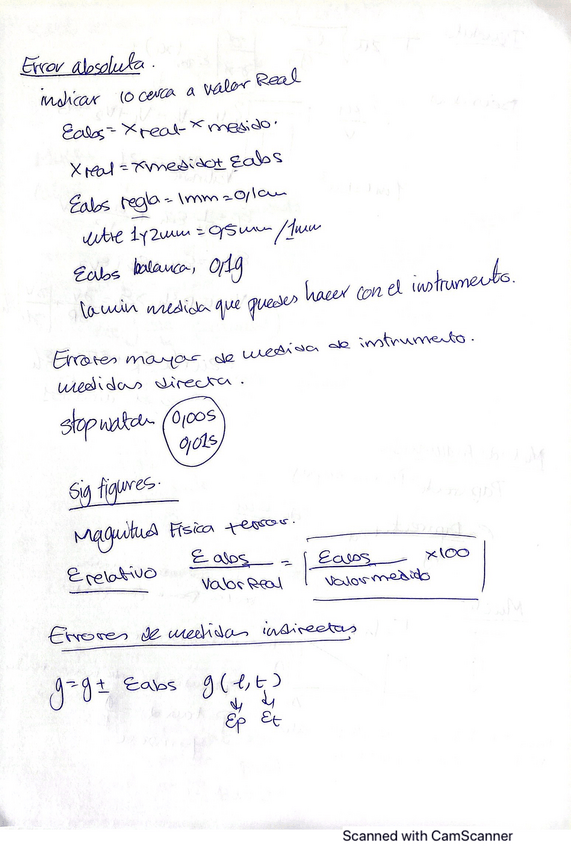 Error absoluta.
indicar lo cerca a valor Real
Eabs = x real - x medido.
x real = x medido ± Eabs
Eabs regla = 1mm = 0,1cm
entre 1 y 2mm = 0,5mm / 1mm
Eabs balanca, 0,1g
la min medida que puedes hacer con el instrumento.
Errores mayor de medida de instrumento.
medidas directa.
stopwatch 0,00s
0,01s
Sig figures.
Magnitud Fisica + error.
E relativo Eabs / Valor Real = Eabs / Valor medido x100
Errores de medidas indirectas
g = g ± Eabs g(l, t)
↓ ↓
Ep Et
Scanned with CamScanner